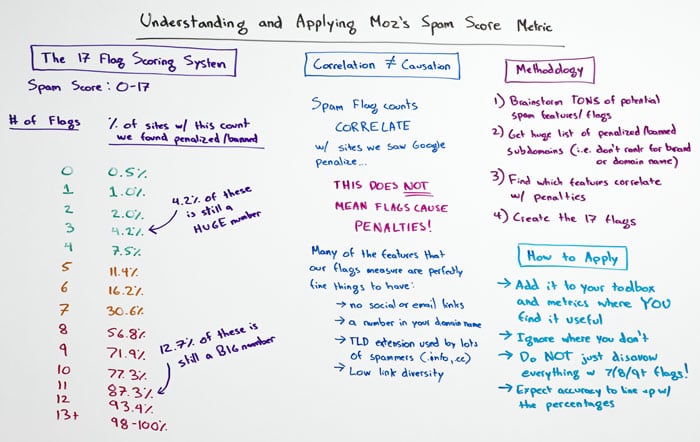 Understanding and Applying Moz's Spam Score Metric
The 17 Flag Scoring System
Spam Score: 0-17
# of Flags
% of sites w/ this count
we found penalized/banned
0 0.5%
1 1.0%
2 2.0%
3 4.2%
4 7.5%
5 11.4%
6 16.2%
7 30.6%
8 56.8%
9 71.9%
10 77.3%
11 87.3%
12 93.4%
13+ 98-100%
4.2% of these
is still a
HUGE number
12.7% of these is
still a BIG number
Correlation ≠ Causation
Spam Flag counts
CORRELATE
w/ sites we saw Google
penalize...
THIS DOES NOT
MEAN FLAGS CAUSE
PENALTIES!
Many of the features that
our flags measure are perfectly
fine things to have:
→ no social or email links
→ a number in your domain name
→ TLD extension used by lots
of spammers (.info, .cc)
→ Low link diversity
Methodology
1) Brainstorm TONS of potential
spam features/flags
2) Get huge list of penalized/banned
subdomains (i.e. don't rank for brand
or domain name)
3) Find which features correlate
w/ penalties
4) Create the 17 flags
How to Apply
→ Add it to your toolbox
and metrics where YOU
find it useful
→ Ignore where you don't
→ Do NOT just disavow
everything w 7/8/9+ flags!
→ Expect accuracy to line up w/
the percentages